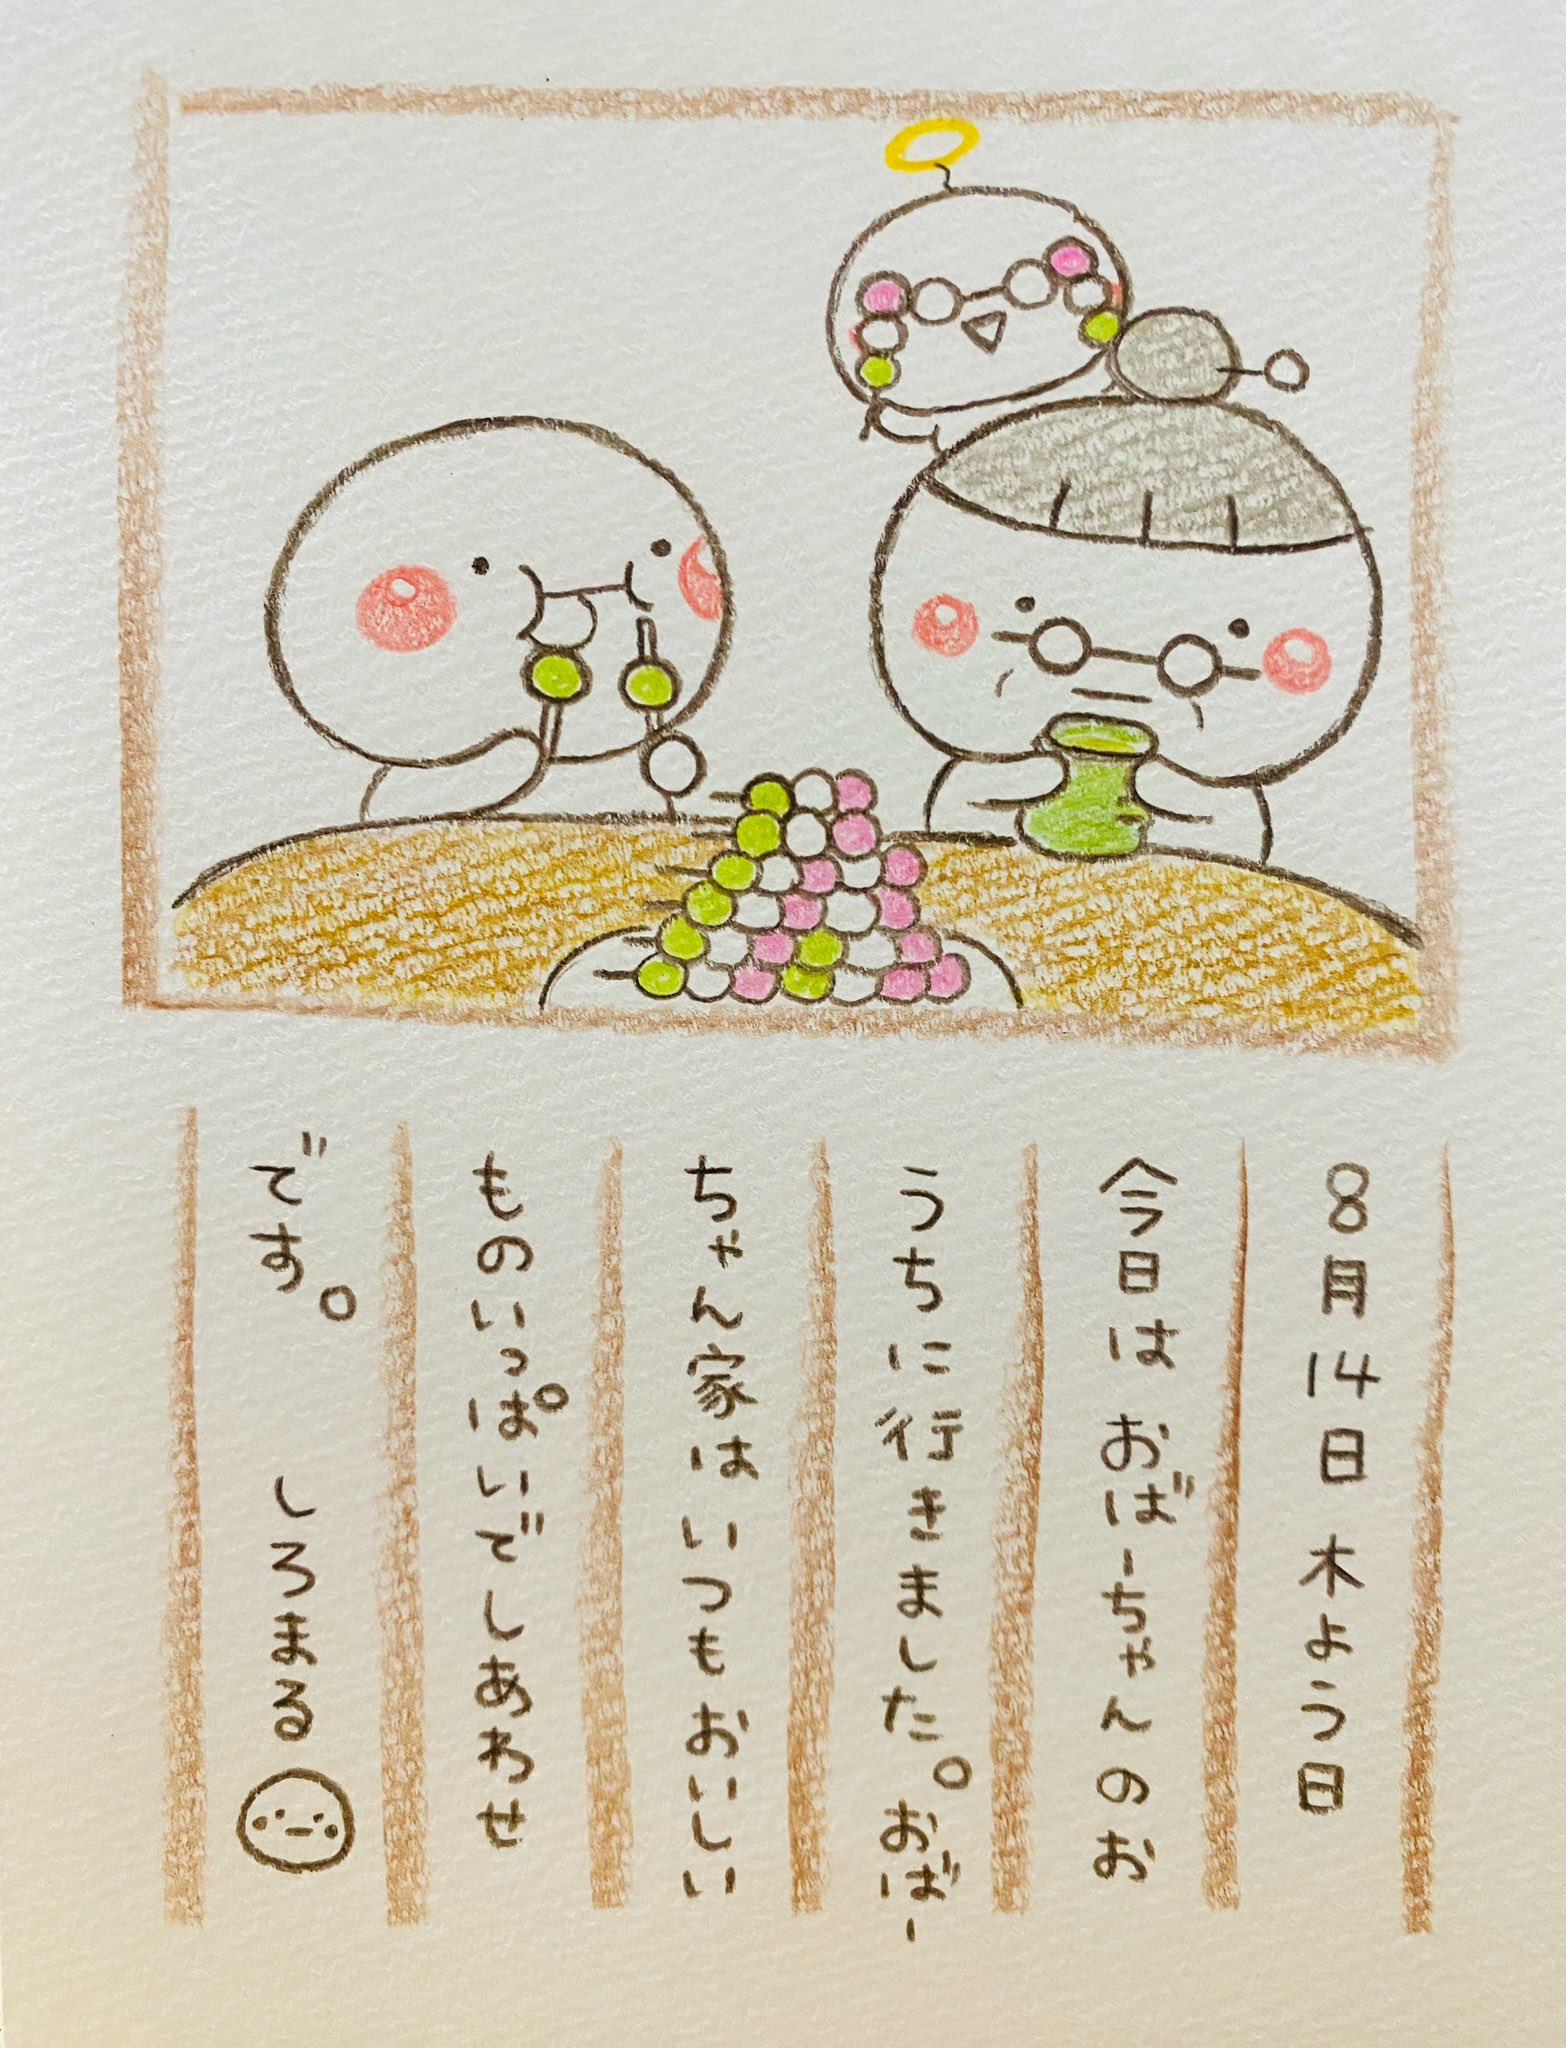 8月14日木よう日
今日はおばーちゃんのお
うちに行きました。おばー
ちゃん家はいつもおいしい
ものいっぱいでしあわせ
です。 しろまる